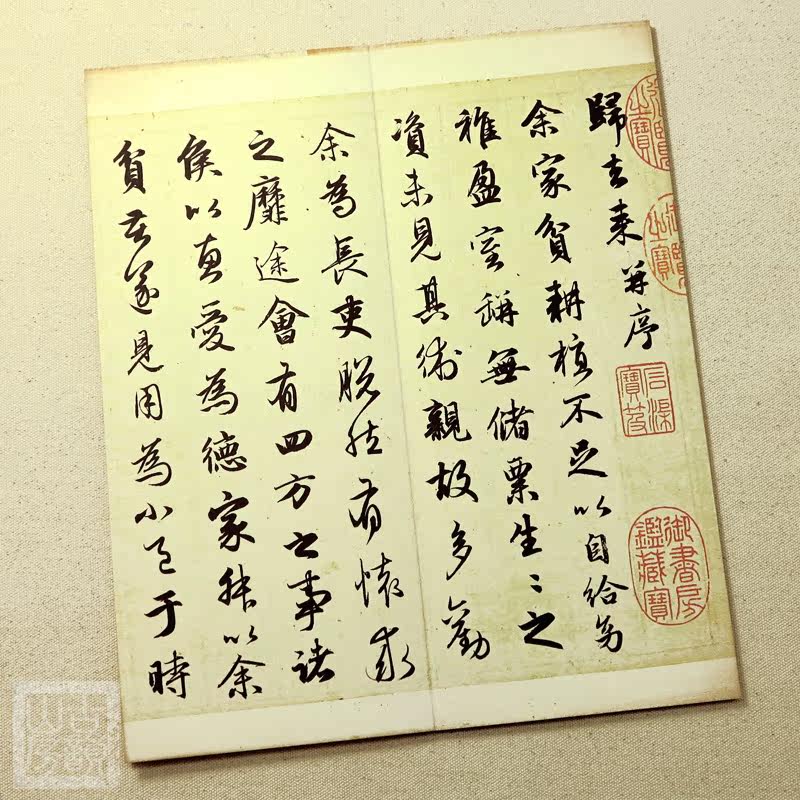 歸去來并序
余家貧耕植不足以自給幼
稚盈室缾無儲粟生〻之
資未見其術親故多勸
余為長吏脫然有懷求
之靡途會有四方之事諸
侯以惠愛為德家叔以余
貧苦遂見用為小邑于時
御覽之寶
石渠寶笈
御書房鑑藏寶